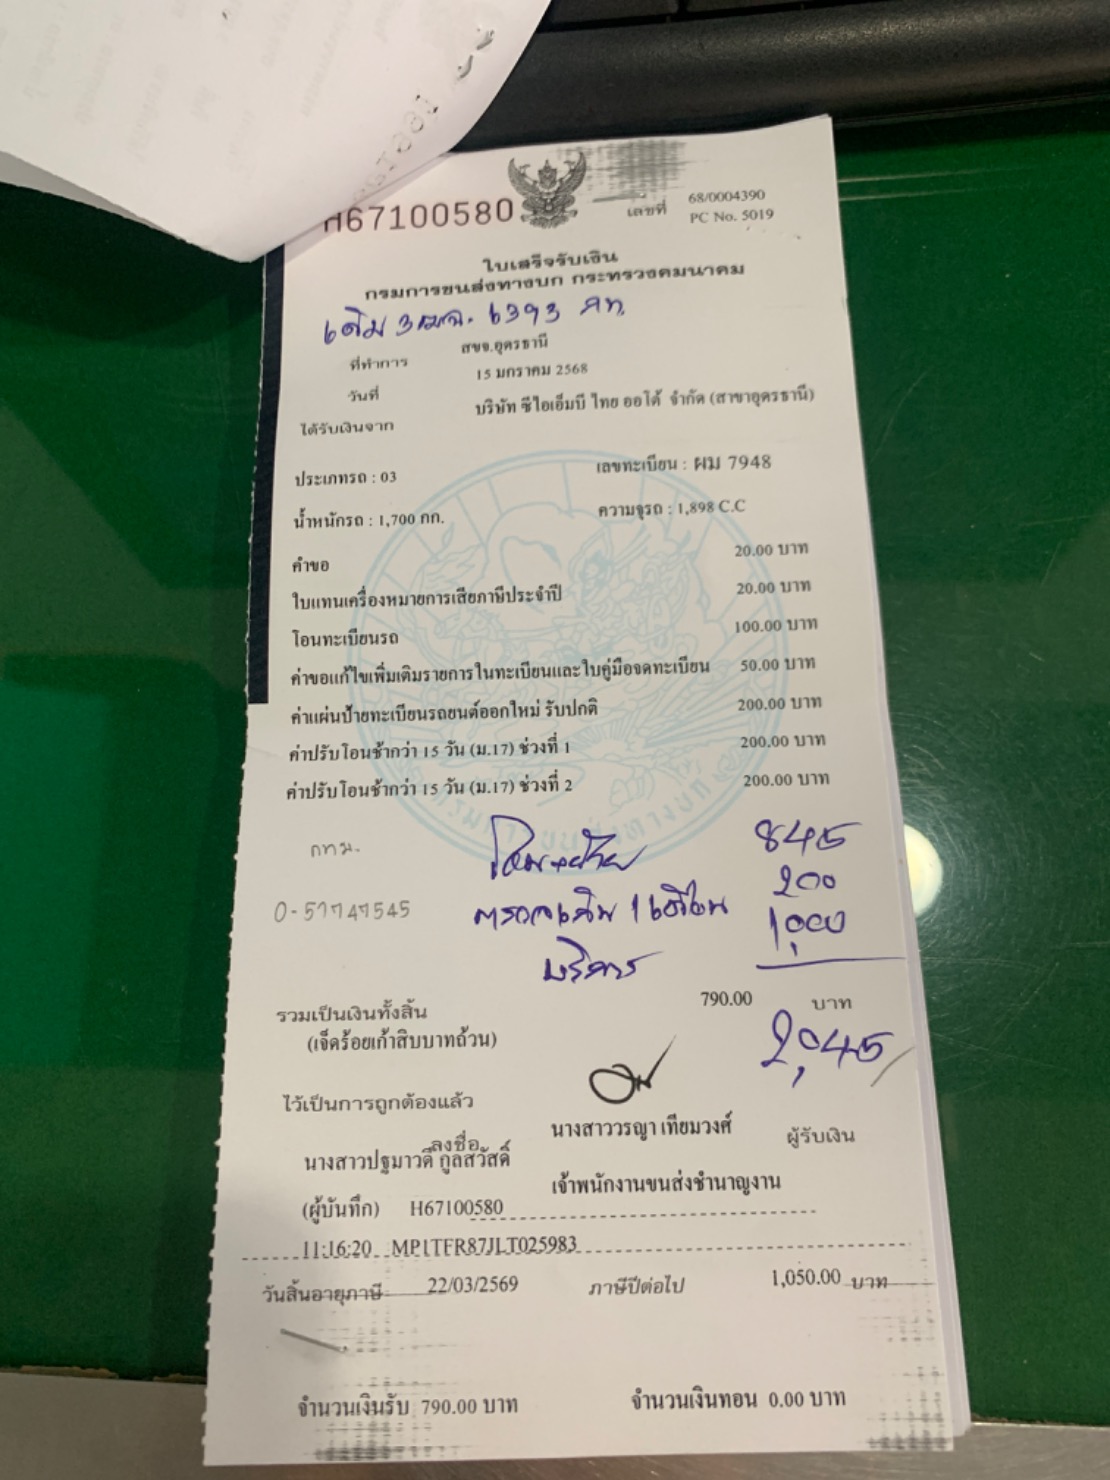 H67100580
เลขที่ 68/0004390
PC No. 5019
ใบเสร็จรับเงิน
กรมการขนส่งทางบก กระทรวงคมนาคม
เดิม 3 6393 กท.
ที่ทำการ สขจ.อุดรธานี
วันที่ 15 มกราคม 2568
ได้รับเงินจาก บริษัท ซีไอเอ็มบี ไทย ออโต้ จำกัด (สาขาอุดรธานี)
ประเภทรถ : 03 เลขทะเบียน : ผม 7948
น้ำหนักรถ : 1,700 กก. ความจุรถ : 1,898 C.C
คำขอ 20.00 บาท
ใบแทนเครื่องหมายการเสียภาษีประจำปี 20.00 บาท
โอนทะเบียนรถ 100.00 บาท
ค่าขอแก้ไขเพิ่มเติมรายการในทะเบียนและใบคู่มือจดทะเบียน 50.00 บาท
ค่าแผ่นป้ายทะเบียนรถยนต์ออกใหม่ รับปกติ 200.00 บาท
ค่าปรับโอนช้ากว่า 15 วัน (ม.17) ช่วงที่ 1 200.00 บาท
ค่าปรับโอนช้ากว่า 15 วัน (ม.17) ช่วงที่ 2 200.00 บาท
กรมการขนส่งทางบก
กทม. 845
0-57747545 200
บริการ 1,000
รวมเป็นเงินทั้งสิ้น 790.00 บาท
(เจ็ดร้อยเก้าสิบบาทถ้วน) 2,045
ไว้เป็นการถูกต้องแล้ว
ลงชื่อ นางสาววรญา เทียมวงศ์ ผู้รับเงิน
นางสาวปฐมาวดี กูลสวัสดิ์ เจ้าพนักงานขนส่งชำนาญงาน
(ผู้บันทึก) H67100580
11:16:20 MP1TFR87JLT025983
วันสิ้นอายุภาษี 22/03/2569 ภาษีปีต่อไป 1,050.00 บาท
จำนวนเงินรับ 790.00 บาท จำนวนเงินทอน 0.00 บาท